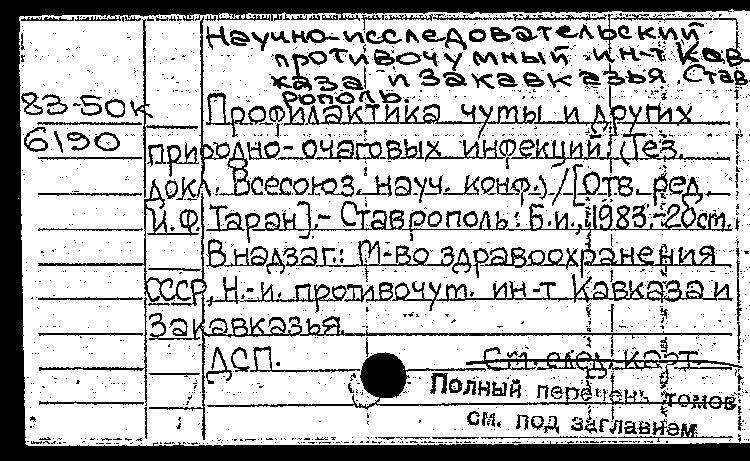 Научно-исследовательский
противочумный ин-т Кав-
каза и Закавказья. Став
рополь.
83-50к Профилактика чумы и других
6190 природно-очаговых инфекций: (Тез.
докл. Всесоюз. науч. конф.) / [Отв. ред.
И.Ф. Таран]. - Ставрополь: Б.и., 1983.-20см.
В надзаг.: М-во здравоохранения
СССР, Н.-и. противочум. ин-т Кавказа и
Закавказья.
ДСП. См. след. карт.
Полный перечень томов
см. под заглавием